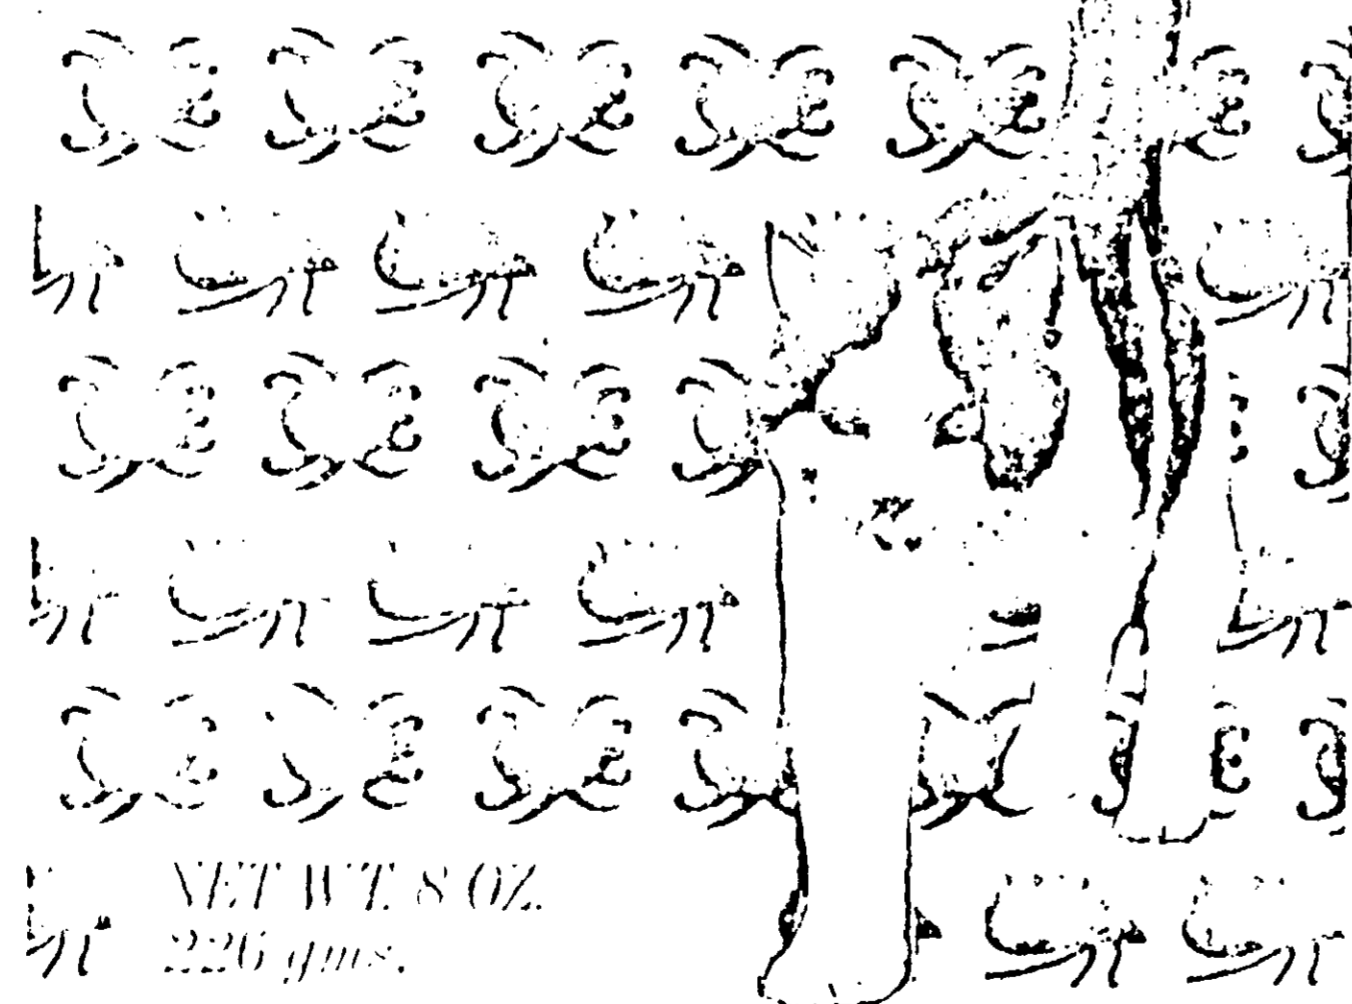 NET WT. 8 OZ.
226 gms.